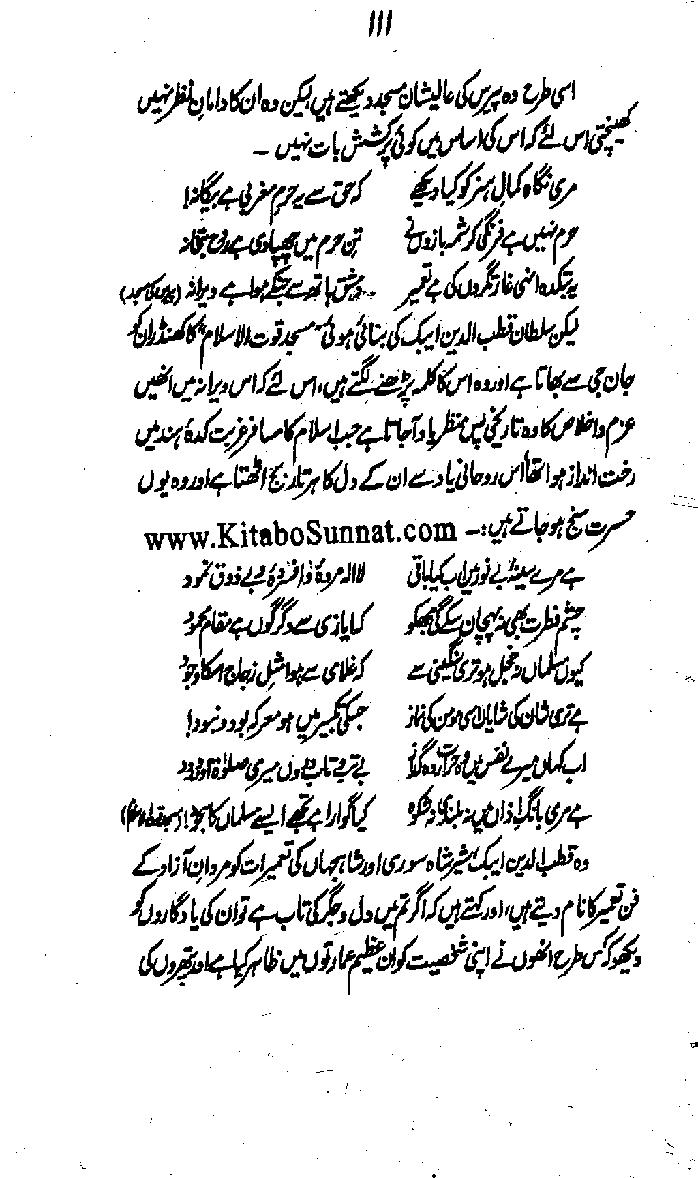 111
اسی طرح وہ پیرس کی عالیشان مسجد دیکھتے ہیں لیکن وہ ان کا دامانِ نظر نہیں
کھینچتی اس لئے کہ اس کی اساس میں کوئی پرکشش بات نہیں ۔
مری نگاہ کمالِ ہنر کو کیا دیکھے کہ حق سے یہ حرمِ مغربی ہے بیگانہ!
حرم نہیں ہے فرنگی کرشمہ بازوں نے تنِ حرم میں چھپا دی ہے روحِ بتخانہ
یہ بتکدہ انہی غارتگروں کی ہے تعمیر دمشق ہاتھ سے جنکے ہوا ہے ویرانہ (پیرس کی مسجد)
لیکن سلطان قطب الدین ایبک کی بنائی ہوئی "مسجد قوت الاسلام" کا کھنڈر ان کو
جان جی سے بھاتا ہے اور وہ اس کا کلمہ پڑھنے لگتے ہیں، اس لئے کہ اس ویرانہ میں انھیں
عزم و اخلاص کا وہ تاریخی پس منظر یاد آجاتا ہے جب اسلام کا مسافر غربت کدۂ ہند میں
رخت انداز ہوا تھا اس روحانی یاد سے ان کے دل کا ہر تار بج اٹھتا ہے اور وہ یوں
حسرت سنج ہو جاتے ہیں :۔ www.KitaboSunnat.com
ہے مرے سینۂ بے نور میں اب کیا باقی لاالہ مردہ و افسردہ و بے ذوقِ نمود
چشمِ فطرت بھی نہ پہچان سکے گی مجھکو کہ ایازی سے دگرگوں ہے مقامِ محمود
کیوں مسلماں نہ خجل ہو تری سنگینی سے کہ غلامی سے ہوا مثلِ زجاج اسکا وجود
ہے تری شان کی شایاں اسی مومن کی نماز جسکی تکبیر میں ہو معرکۂ بود و نبود!
اب کہاں میرے نفس میں وہ حرارت وہ گداز بے تب و تابِ دروں میری صلوٰۃ اور درود
ہے مری بانگِ اذاں میں نہ بلندی نہ شکوہ کیا گوارا ہے تجھے ایسے مسلماں کا سجود! (مسجد قوۃ الاسلام)
وہ قطب الدین ایبک، شیر شاہ سوری اور شاہجہاں کی تعمیرات کو مردانِ آزاد کے
فنِ تعمیر کا نام دیتے ہیں، اور کہتے ہیں کہ اگر تم میں دل و جگر کی تاب ہے تو ان کی یادگاروں کو
دیکھو کہ کس طرح انھوں نے اپنی شخصیت کو ان عظیم عمارتوں میں ظاہر کیا ہے اور پتھروں کی